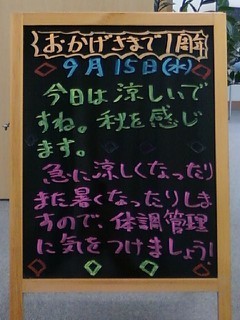 おかげさまで1周年
9月15日(水)
今日は涼しいで
すね。秋を感じ
ます。
急に涼しくなったり
また暑くなったりしま
すので、体調管理
に気をつけましょう!